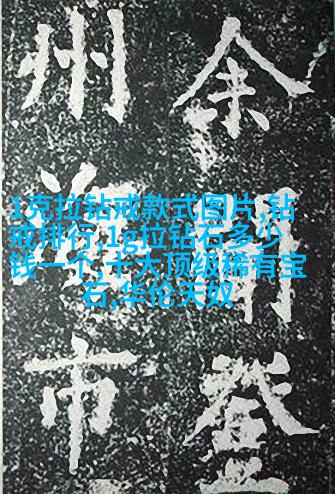 1克拉钻戒款式图片,钻
戒排行,1g拉钻石多少
钱一个,十大顶级稀有宝
石,华伦天奴
余登
州市